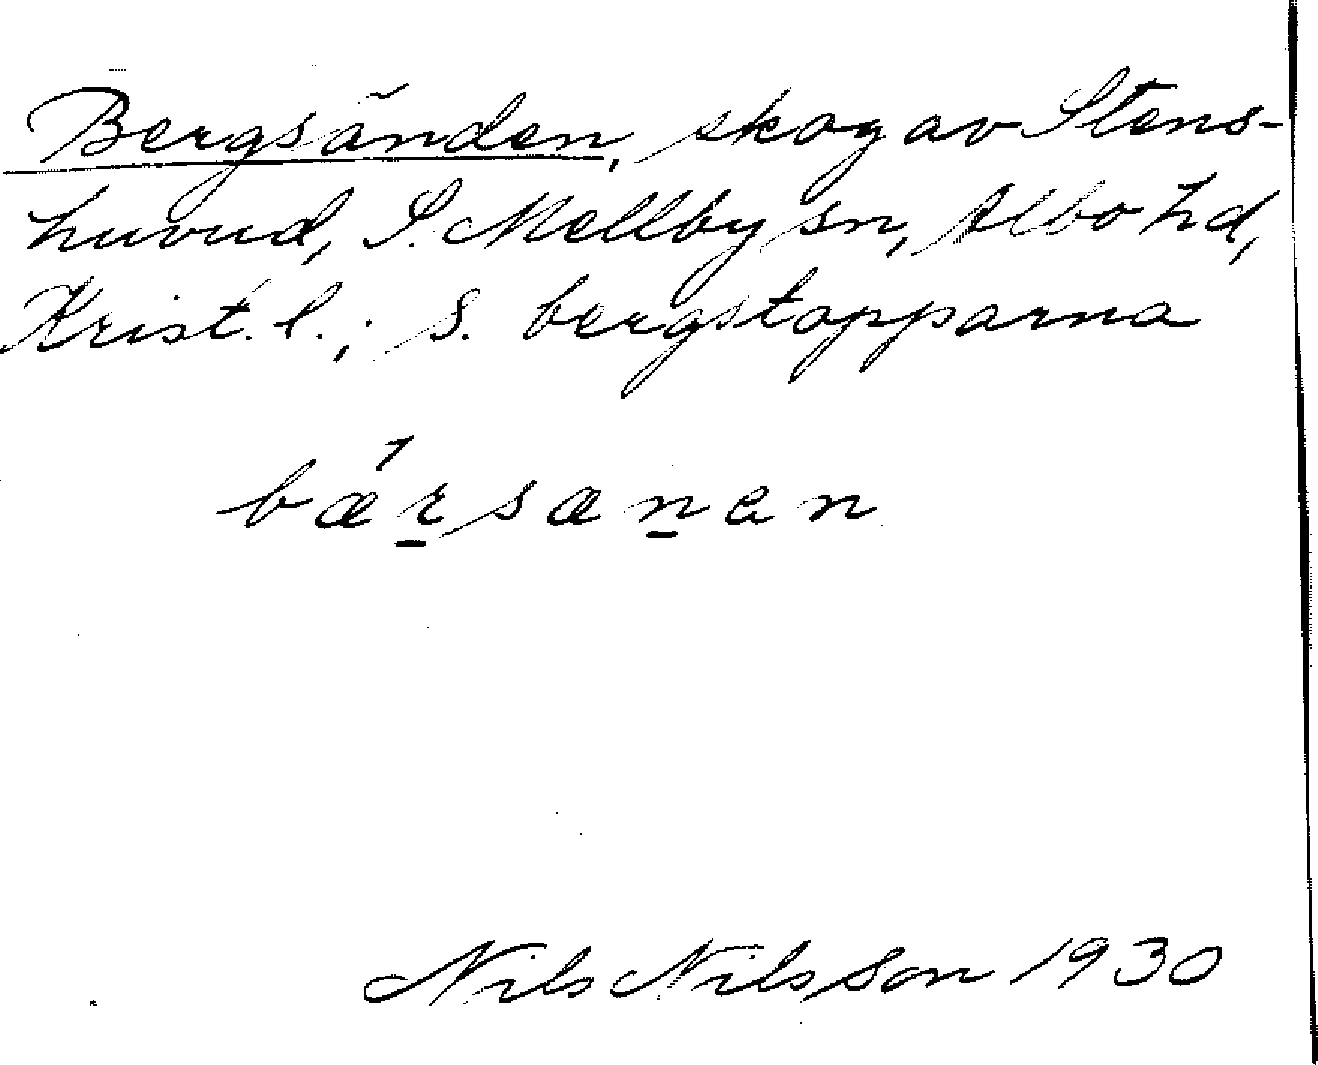 Bergsänden, skog av Stens-
huvud, S. Mellby sn, Albo hd,
Krist. l.; S. bergstopparna
bǽr̲sæn̲en
Nils Nilsson 1930